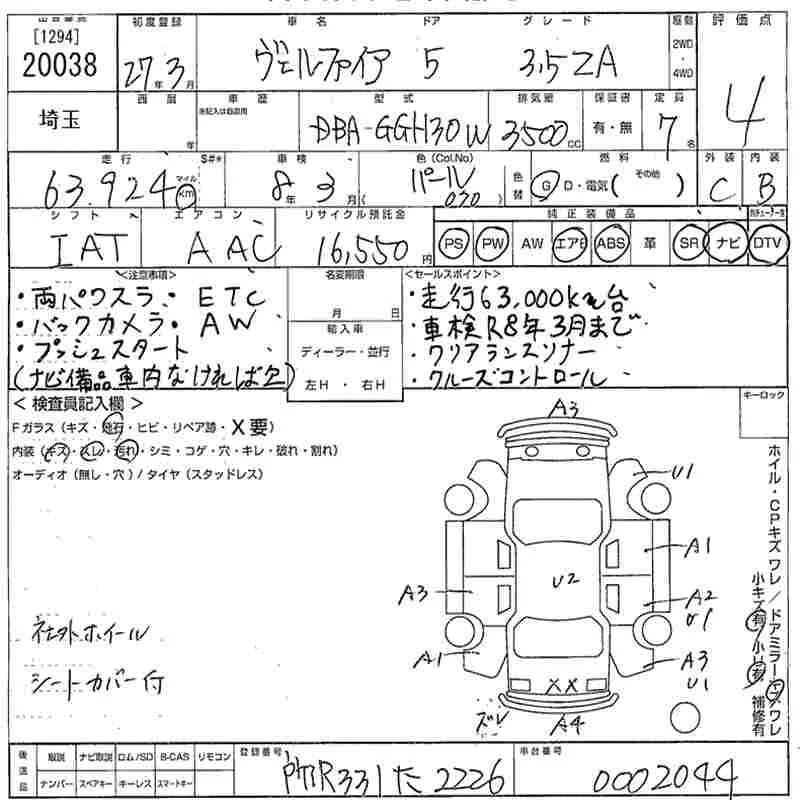 出品番号 初度登録 車名 ドア グレード 駆動 評価点
[1294]
20038 27年3月 ヴェルファイア 5 3.5ZA 2WD・4WD 4
埼玉 西暦 年 車歴 ※記入は自家用 型式 DBA-GGH30W 排気量 3500CC 保証書 有・無 定員 7名
走行 63,924 マイル km S#* 車検 8年3月 色(Col.No) パール (070) 色替 燃料 G・D・電気( その他 ) 外装 C 内装 B
シフト IAT エアコン AAC リサイクル預託金 16,550円 純正装備品 PS PW AW エアB ABS 革 SR ナビ DTV
<注意事項>
・両パワスラ・ETC
・バックカメラ・AW
・プッシュスタート
(ナビ備品車内なければ欠)
名変期限
月 日
輸入車
ディーラー・並行
左H・右H
<セールスポイント>
・走行63,000km台
・車検R8年3月まで
・クリアランスソナー
・クルーズコントロール
<検査員記入欄>
Fガラス(キズ・飛石・ヒビ・リペア跡・X要)
内装(キズ・スレ・汚れ・シミ・コゲ・穴・キレ・破れ・割れ)
オーディオ(無し・穴)/タイヤ(スタッドレス)
キーロック
A3
U1
A1
U2
A3
A2
U1
A1
A3
U1
XX
ズレ
A4
社外ホイール
シートカバー付
ホイル・CPキズワレ/ドアミラーキズワレ
小キズ有/小凹有 補修有
後送品 取説 ナビ取説 ロム/SD B-CAS リモコン
ナンバー スペアキー キーレス スマートキー
登録番号 331 た 2226
車台番号 0002044